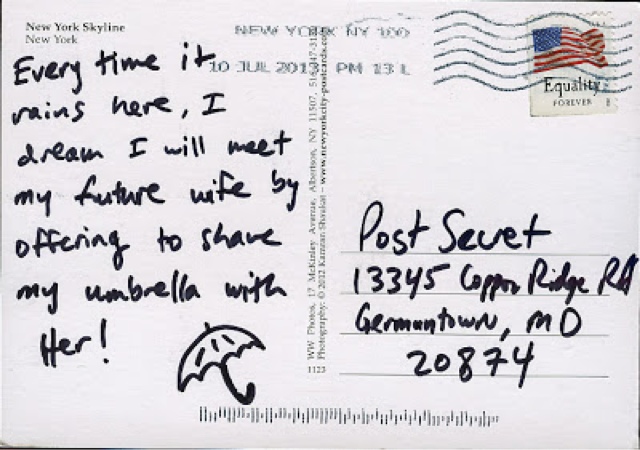 New York Skyline
New York
Every time it
rains here, I
dream I will meet
my future wife by
offering to share
my umbrella with
Her!
NEW YORK NY 100
10 JUL 201 PM 13 L
Equality
FOREVER
WW Photos, 17 McKinley Avenue, Albertson, NY 11507, www.newyorkcity-postcards.com
Photography: © 2012 Kamran Shaukat
1123
Post Secret
13345 Copper Ridge Rd
Germantown, MD
20874